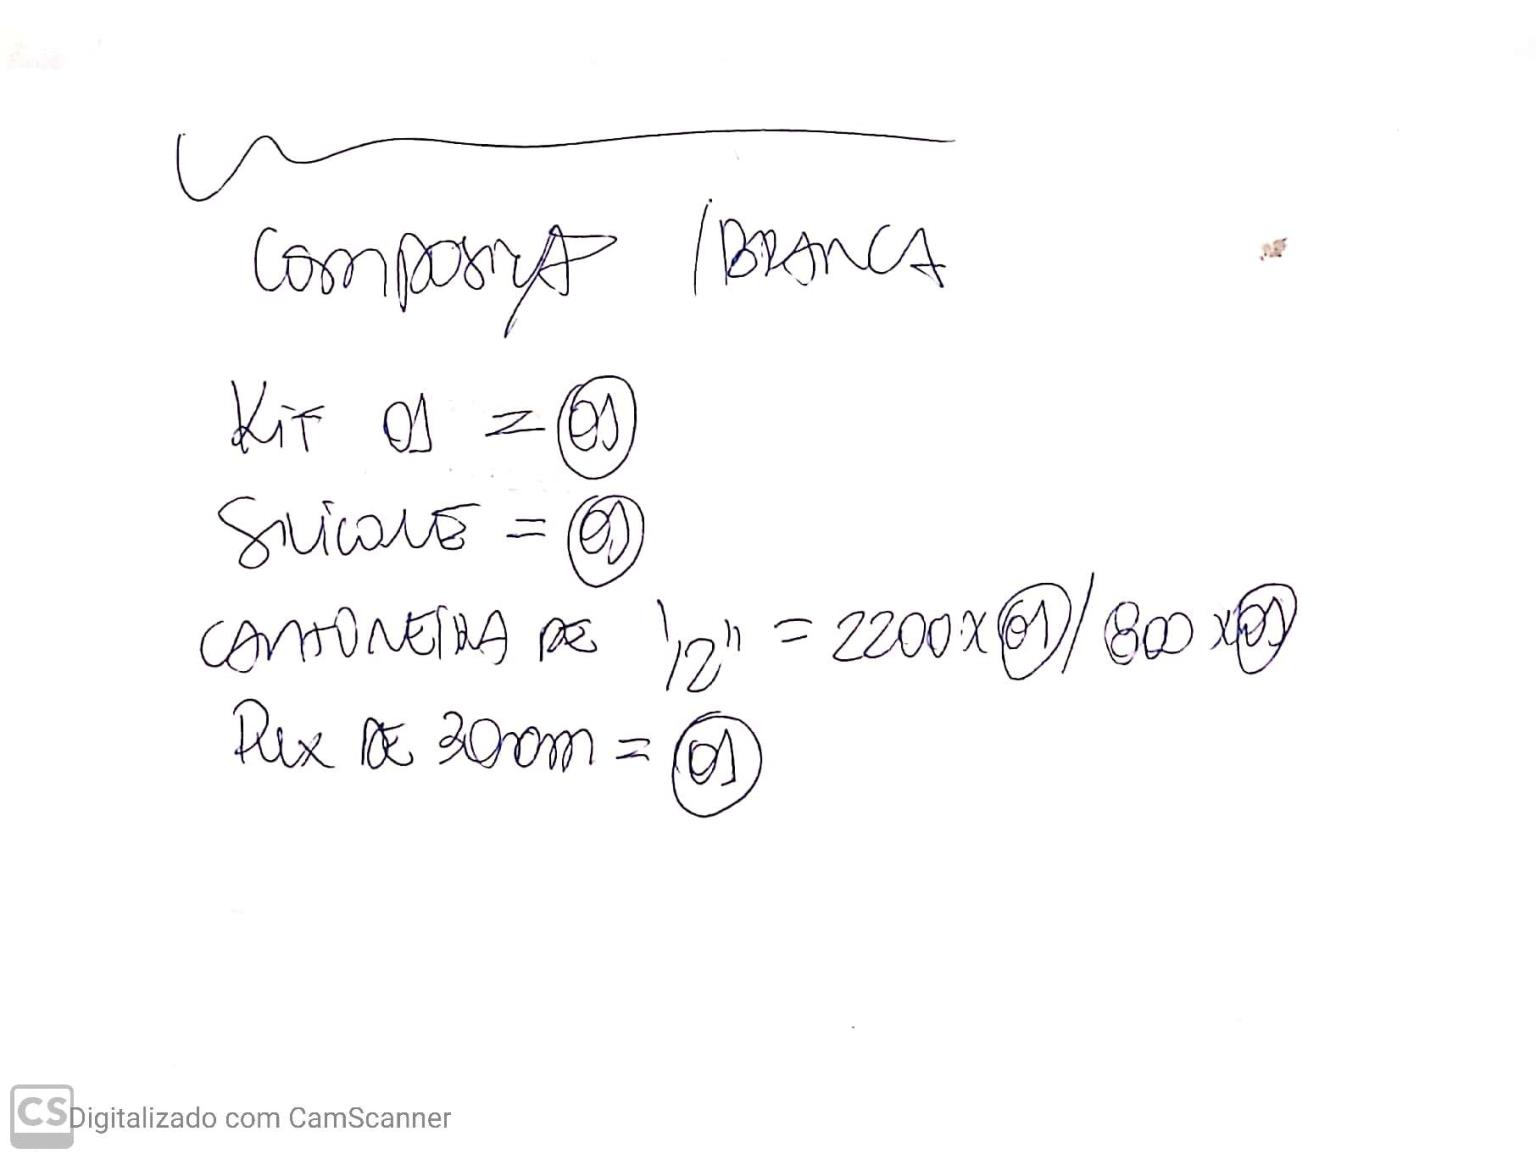 Composiya / BRANCA
Kit 01 = 01
Silicone = 01
CANTONEIRA DE 1/2" = 2200 x 01 / 800 x 01
DE 30mm = 01
CS Digitalizado com CamScanner